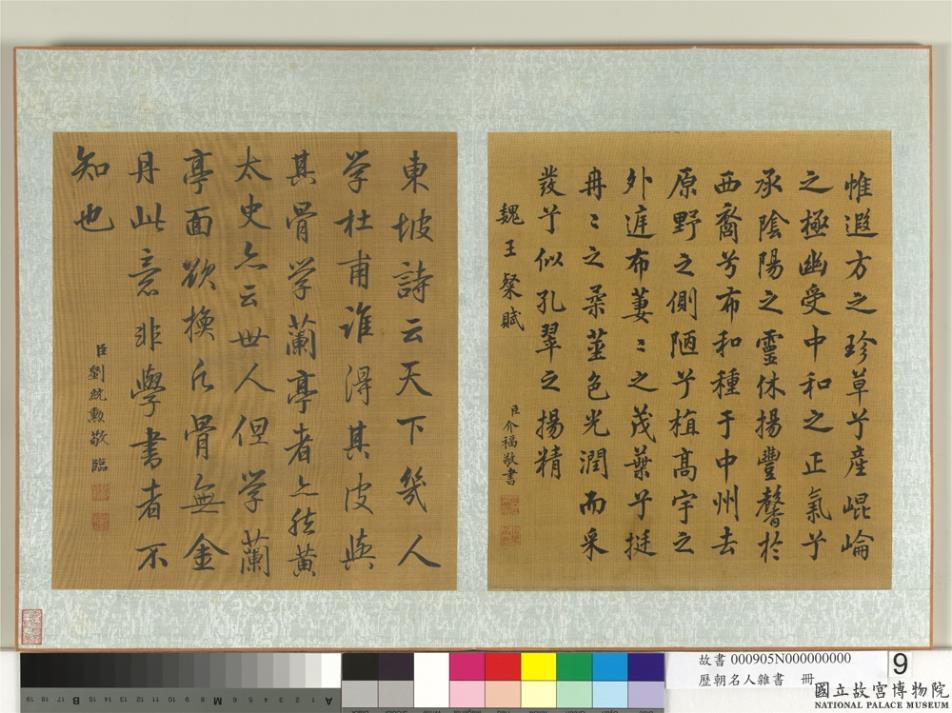 惟遐方之珍草兮產崐崘
之極幽受中和之正氣兮
承陰陽之靈休揚豐馨於
西裔兮布和種于中州去
原野之側陋兮植高宇之
外庭布萋〻之茂葉兮挺
冉〻之柔莖色光潤而采
發兮似孔翠之揚精
魏王粲賦
臣介福敬書
東坡詩云天下幾人
学杜甫誰得其皮與
其骨学蘭亭者亦然黄
太史亦云世人但学蘭
亭面欲換凡骨無金
丹此意非學書者不
知也
臣劉統勲敬臨
故書 000905N000000000
歷朝名人雜書 冊
9
國立故宮博物院
NATIONAL PALACE MUSEUM